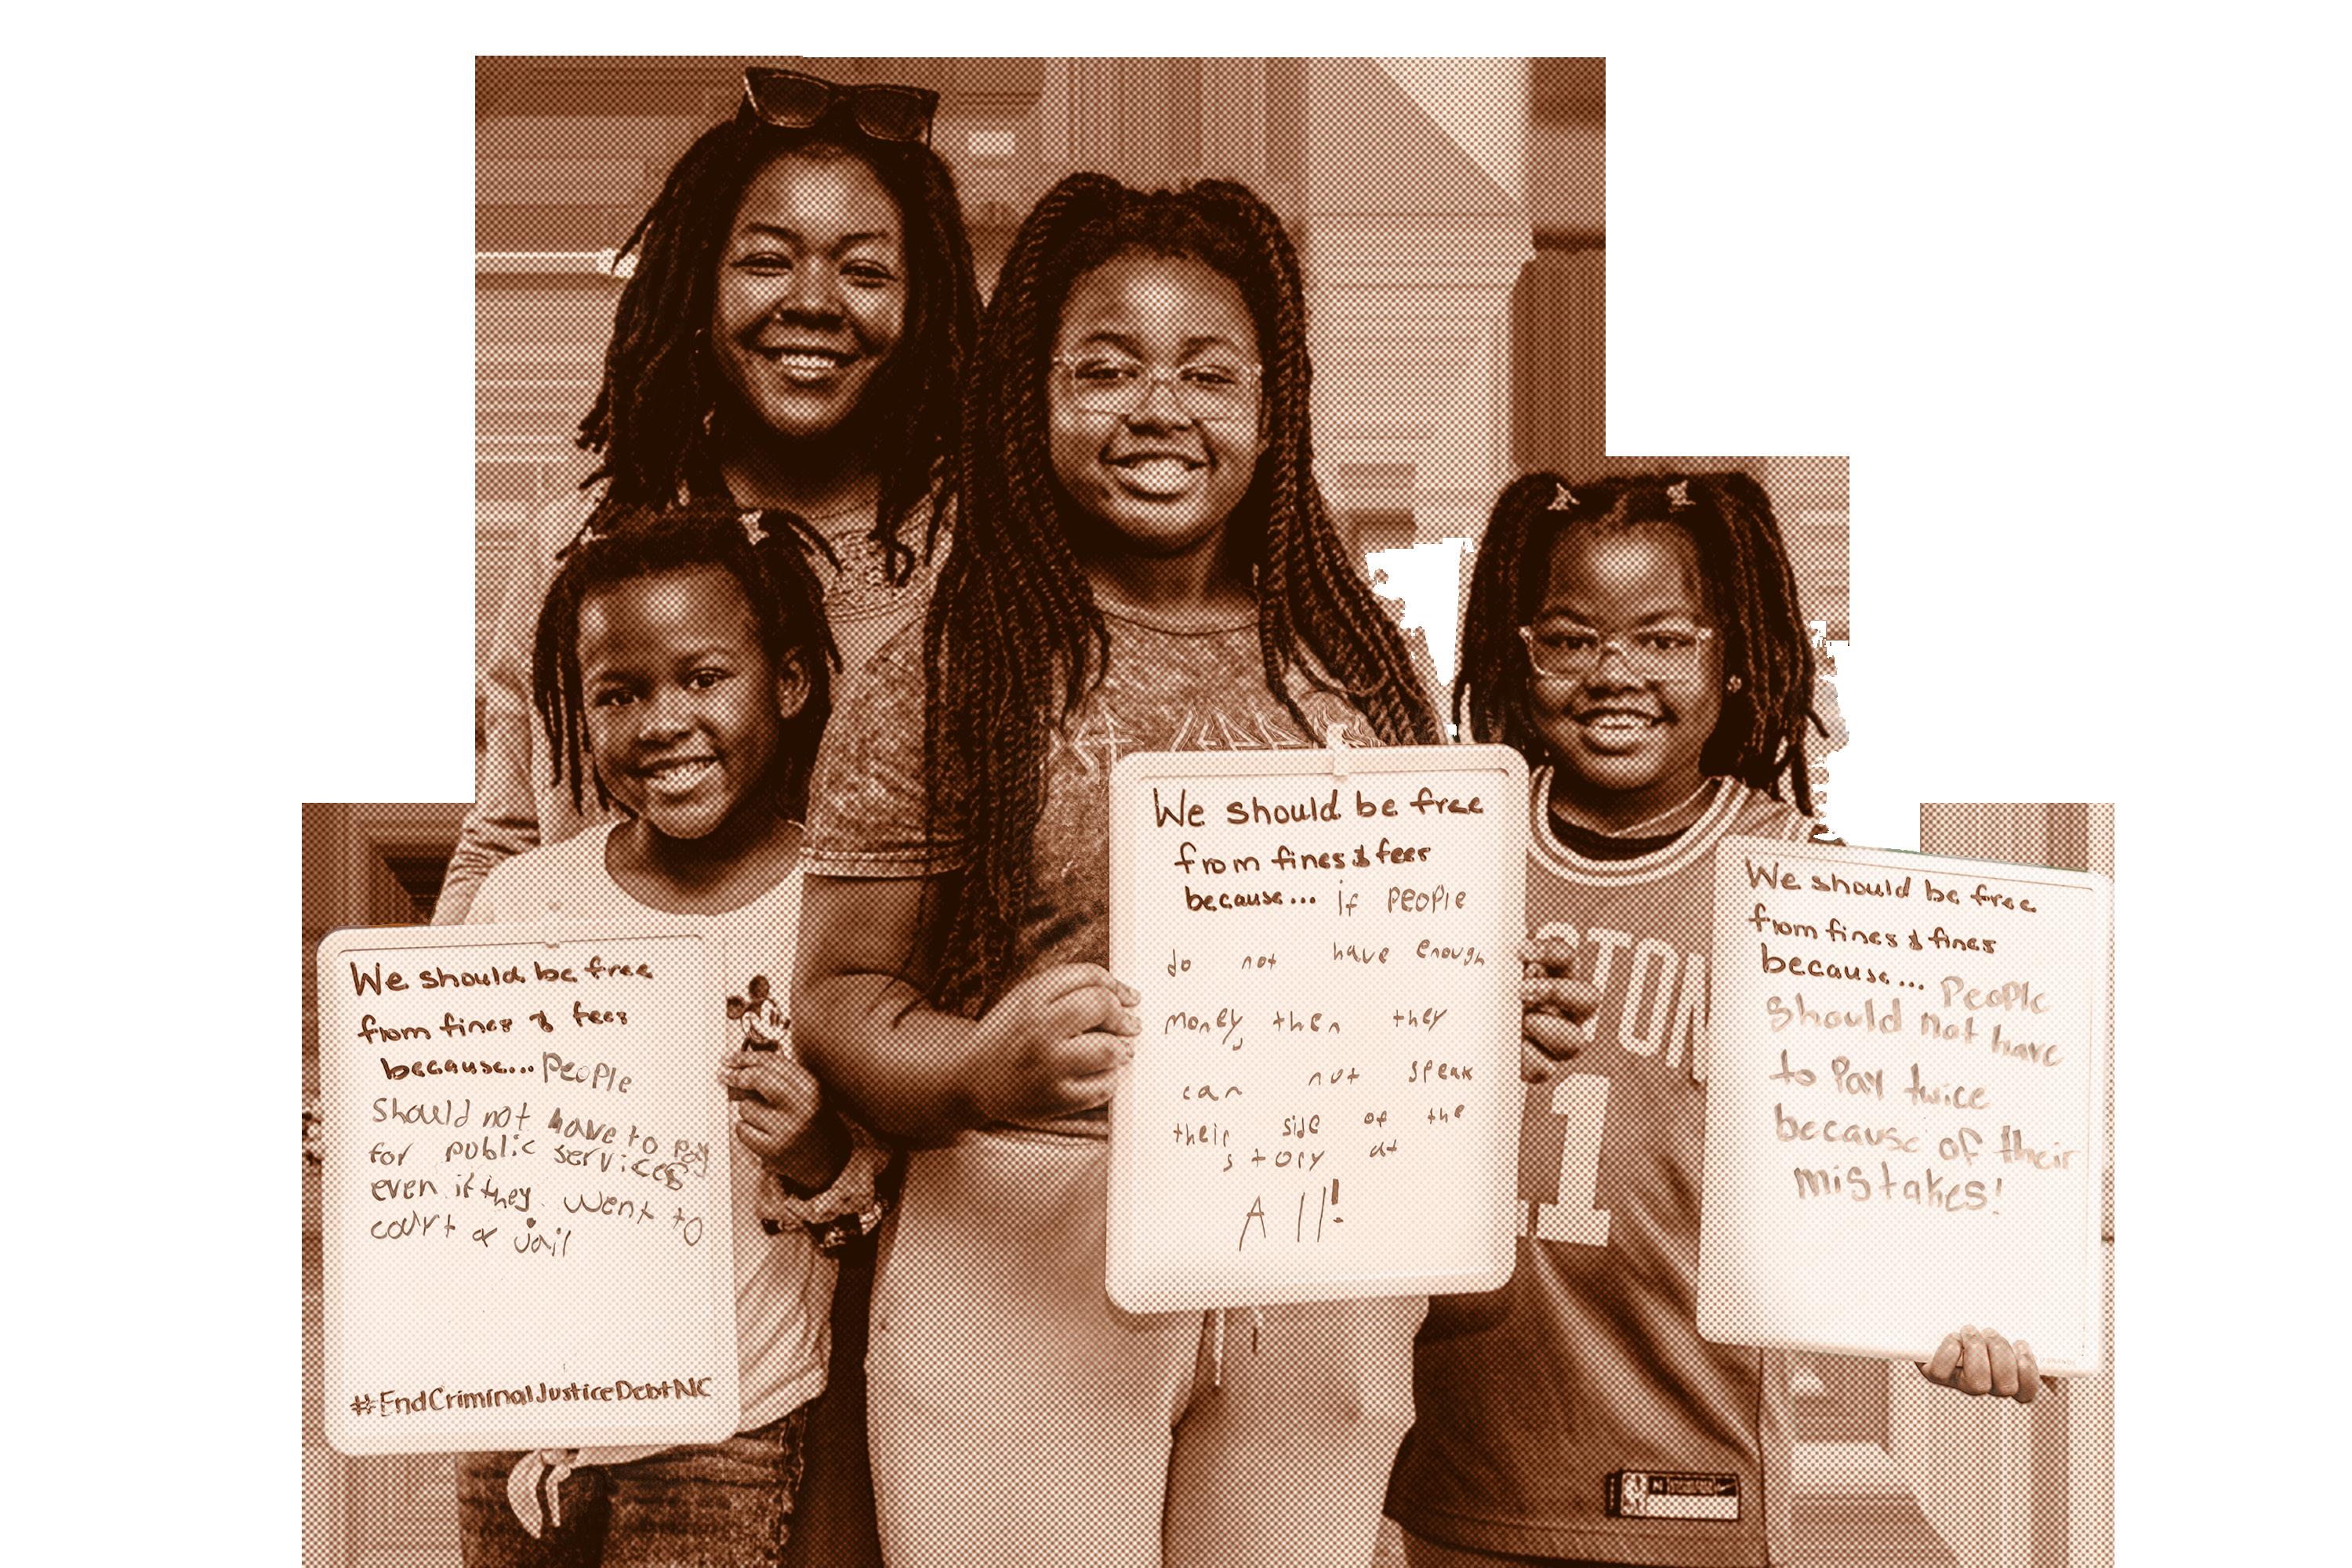 We should be free
from fines & fees
because... People
should not have to pay
for public services
even if they went to
court or jail
#EndCriminalJusticeDebtNC
We should be free
from fines & fees
because... if people
do not have enough
money then they
can not speak
their side of the
story at
All!
We should be free
from fines & fines
because... People
should not have
to Pay twice
because of their
mistakes!